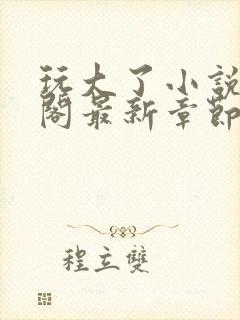 玩大了小説
閣最新章節
程立雙